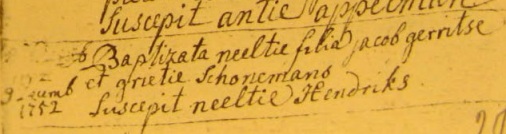 Suscepit antie appelman
Baptizata neeltie filia jacob gerritse
et grietie Schonemans
1752 Suscepit neeltie Hendriks.